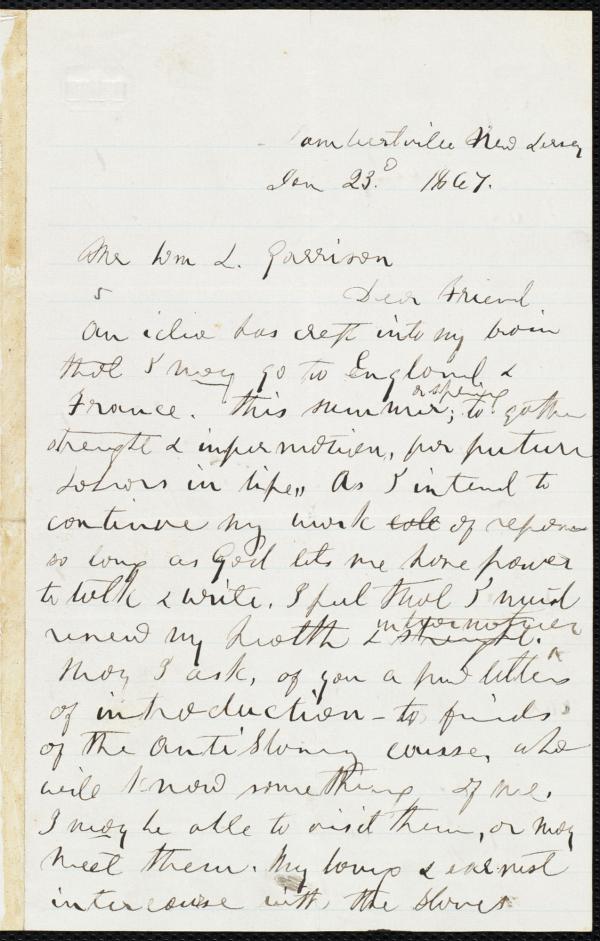 Lambertville New Jersey
Jan 23.d 1867.
Mr Wm L. Garrison
Dear Friend
An idea has crept into my brain
that I may go to England &
France. this summer, or spring to gather
strength & information, for future
labors in life,, As I intend to
continue my work of reform
so long as God lets me have power
to talk & write. I feel that I must
renew my health & information
May I ask, of you a few letters
of introduction - to friends
of the AntiSlavery cause, who
will know something of me.
I may be able to visit them, or may
meet them. My long & earnest
intercourse with, the slaves